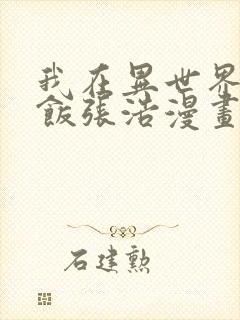 我在異世界
飯張浩漫畫
石建勲